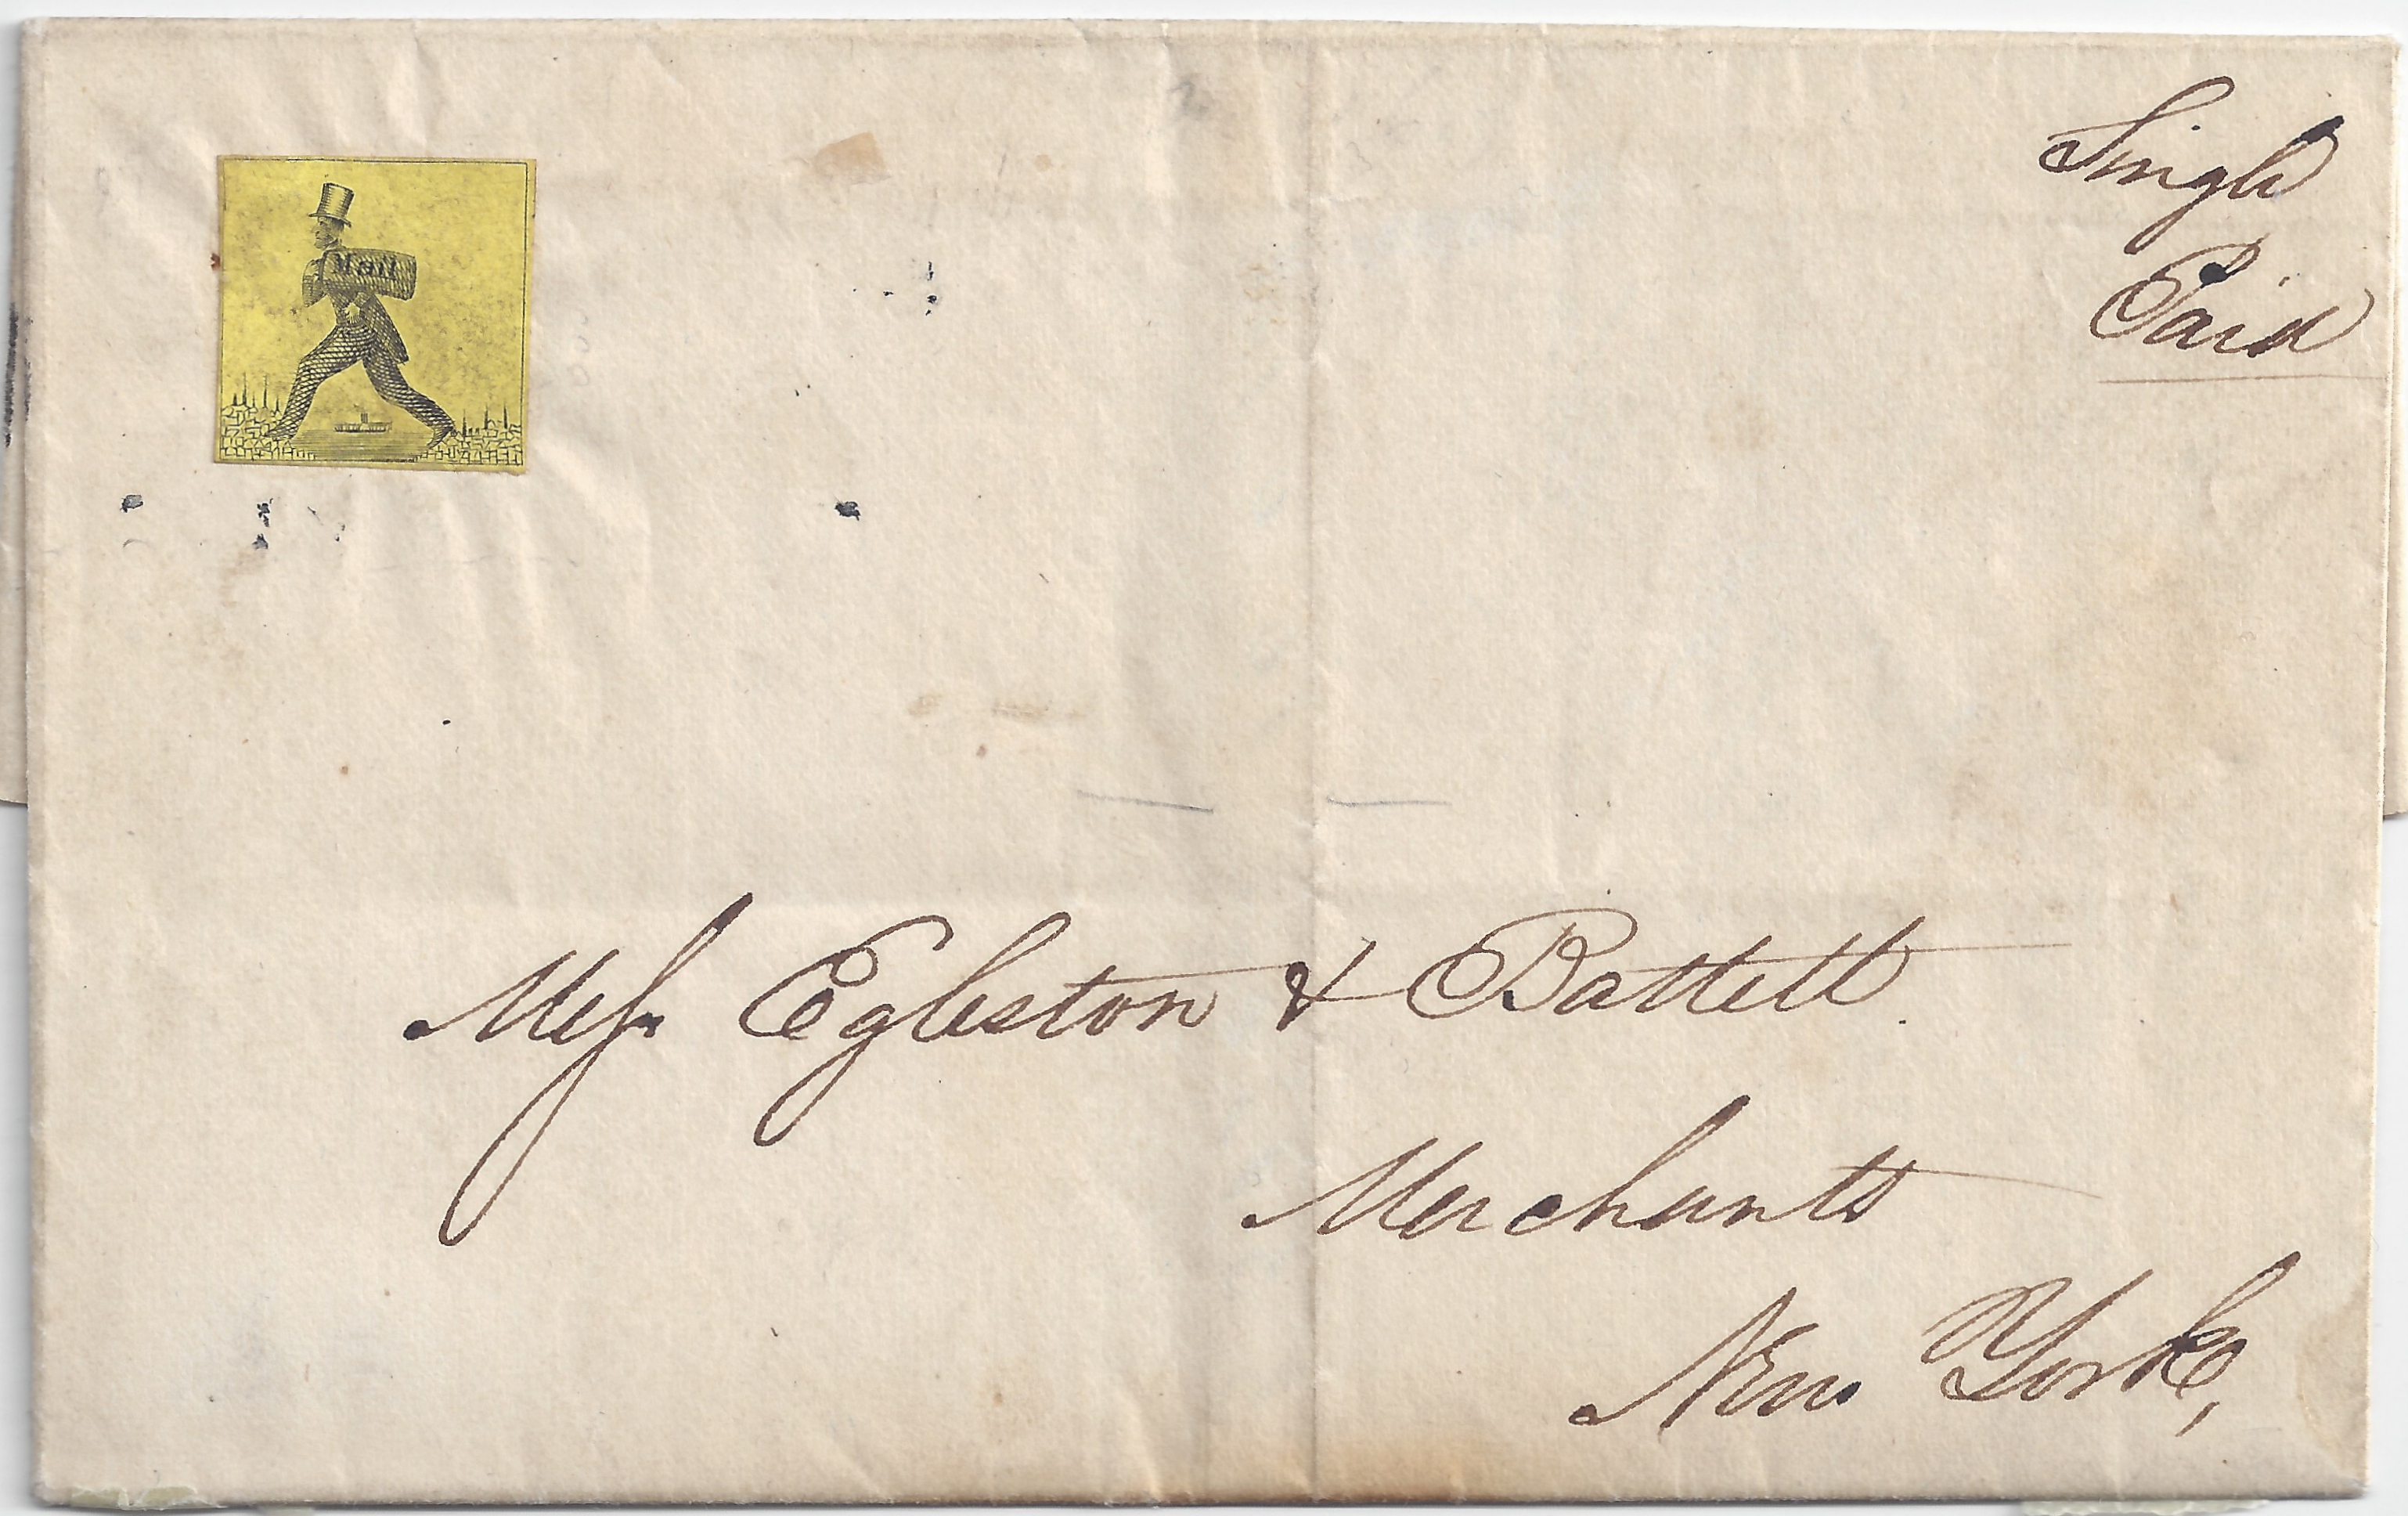 Mail
Single
Paid
Mess Egleston & Battell.
Merchants
New York,